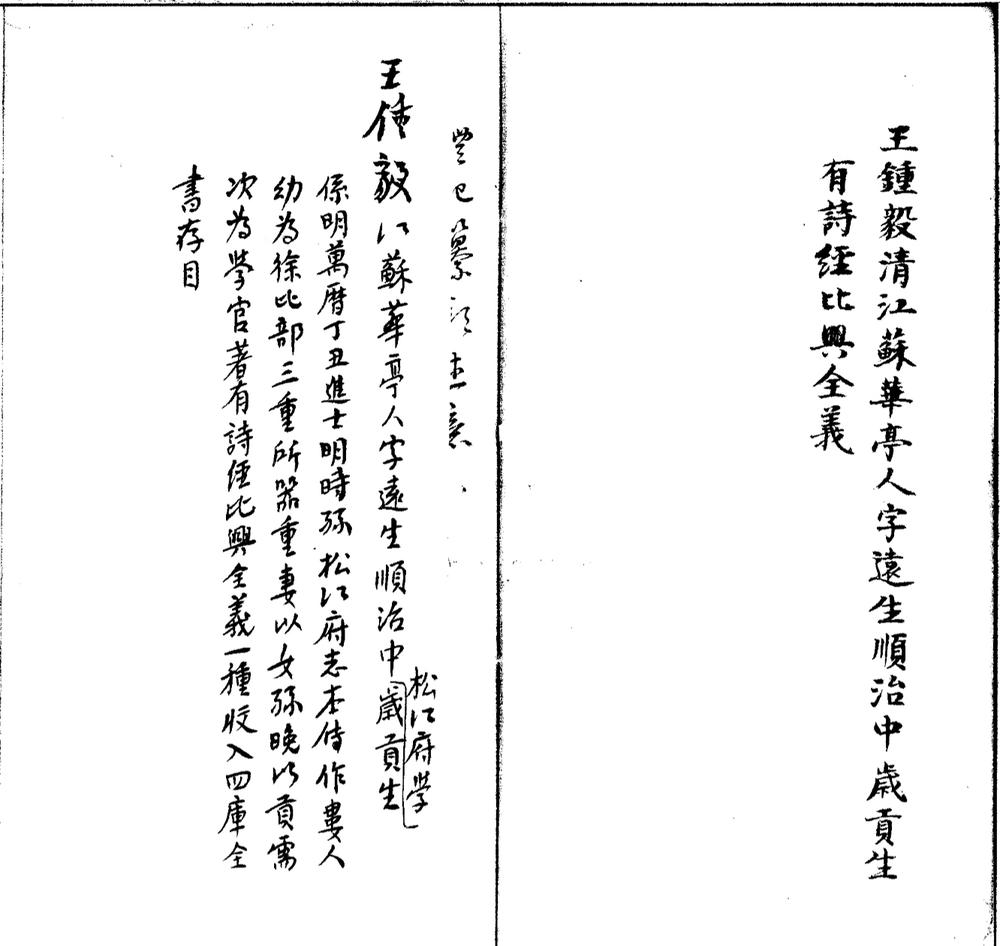 王鍾毅清江蘇華亭人字遠生順治中歲貢生
有詩經比興全義
王鍾毅江蘇華亭人字遠生順治中歲貢生
松江府學
係明萬曆丁丑進士明時孫松江府志本傳作婁人
幼為徐比部三重所器重妻以女孫晚以貢需
次為學官著有詩經比興全義一種收入四庫全
書存目